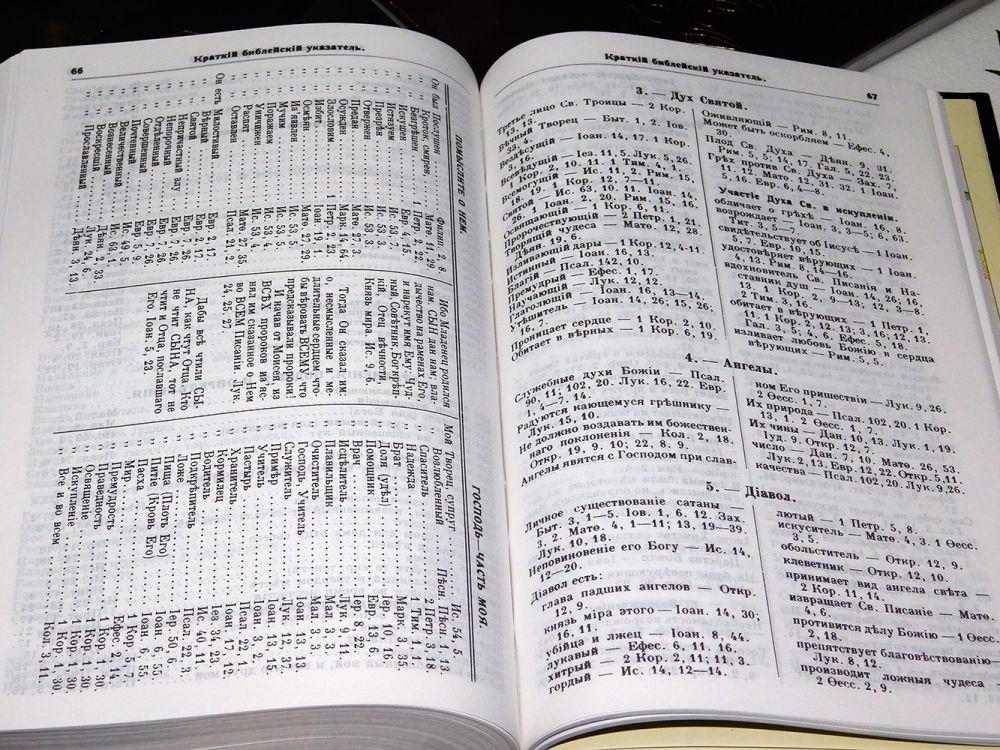 66
Краткій библейскій указатель.
ПОМЫСЛИТЕ О НЕМ.
Он был Послушен . . . Филип. 2, 8.
„ „ Кроток, смирен, Матѳ. 11, 29.
„ „ Безгрѣшен . . . 1 Петр. 2, 22
„ „ Искушен . . . Евр. 4, 15.
„ „ Презрѣн . . . Ис. 53, 3.
„ „ Отвержен . . . Ис. 53, 3.
„ „ Предан . . . Матѳ. 27, 3
„ „ Осужден . . . Марк. 14, 64
„ „ Злословим . . . 1 Петр. 2, 23
„ „ Избит . . . Іоан. 19, 1.
„ „ Осмѣян . . . Матѳ. 27, 29
„ „ Изъязвлен . . . Ис. 53, 5.
„ „ Мучим . . . Ис. 53, 5.
„ „ Поражаем . . . Ис. 53, 4.
„ „ Уничижен . . . Ис. 53, 4.
„ „ Распят . . . Матѳ. 27, 35.
„ „ Оставлен . . . Псал. 21, 2.
Он есть Милостивый . . . Евр. 2, 17.
„ „ Вѣрный . . . Евр. 2, 17.
„ „ Святой . . . Евр. 7, 26.
„ „ Непричастный злу . Евр. 7, 26.
„ „ Непорочный . . . Евр. 7, 26.
„ „ Отдѣленный . . . Евр. 7, 26.
„ „ Совершенный . . . Евр. 5, 9.
„ „ Почтенный . . . Ис. 49, 5.
„ „ Величественный . . . Ис. 63, 1.
„ „ Вознесенный . . . Дѣян. 2, 33.
„ „ Воскресшій . . . Лук. 24, 6.
„ „ Прославленный . . . Дѣян. 3, 13.
Ибо Младенец родился
нам, СЫН дан нам; вла-
дычество на раменах Его,
и нарекут имя Ему: Чуд-
ный, Совѣтник, Богкрѣп-
кій, Отец вѣчности,
Князь мира. Ис. 9, 6.
Тогда Он сказал им:
о, несмысленные и ме-
длительные сердцем, что-
бы вѣровать ВСЕМУ, что
предсказывали пророки!
И начав от Моисея, из
ВСѢХ пророков из'яс-
нял им сказанное о Нем
во ВСЕМ Писаніи. Лук.
24, 25. 27.
Дабы всѣ чтили СЫ-
НА, как чтут Отца. Кто
не чтит СЫНА, тот не
чтит и Отца, пославшаго
Его. Іоан. 5, 23
ГОСПОДЬ – ЧАСТЬ МОЯ.
Мой Творец, супруг . . . Ис. 54, 5.
„ Возлюбленный . . . Пѣсн. Пѣсн. 1, 13.
„ Спаситель . . . 2 Петр. 3, 18
„ Надежда . . . 1 Тим. 1, 1.
„ Брат . . . Марк. 3, 35.
„ Доля (удѣл) . . . Іер. 10, 16
„ Помощник . . . Евр. 13, 6.
„ Врач . . . Іер. 8, 22.
„ Исцѣлитель . . . Лук. 9, 11
„ Плавильщик . . . Мал. 3, 3.
„ Очиститель . . . Мал. 3, 3.
„ Господь, Учитель . . . Іоан. 13, 13.
„ Служитель . . . Лук. 12, 37.
„ Примѣр . . . Іоан. 13, 15.
„ Учитель . . . Іоан. 3, 2.
„ Пастырь . . . Псал. 22, 1.
„ Хранитель . . . Іоан. 17, 12.
„ Кормилец . . . Іез. 34, 23.
„ Водитель . . . Ис. 40, 11.
„ Подкрѣпитель . . . Псал. 22, 3.
„ Покой . . . Іер. 50, 6.
„ Пища (Плоть Его) . . . Іоан. 6, 55.
„ Питіе (Кровь Его) . . . Іоан. 6, 55.
„ Пасха . . . 1 Кор. 5, 7.
„ Мир . . . Ефес. 2, 14.
„ Премудрость . . . 1 Кор. 1, 30.
„ Праведность . . . 1 Кор. 1, 30.
„ Освященіе . . . 1 Кор. 1, 30.
„ Искупленіе . . . 1 Кор. 1, 30.
„ Все и во всем . . . Кол. 3, 11.
Краткій библейскій указатель.
67
3. — Дух Святой.
Третье лицо Св. Троицы — 2 Кор.
13, 13.
Вѣчный Творец — Быт. 1, 2. Іов.
33, 4.
Вездѣсущій — Іоан. 14, 17. 1 Кор.
3, 16.
Всевѣдущій — Іез. 11, 5. Лук. 5, 26.
1 Кор. 2, 10. 11. 1 Тим. 4, 1.
Всемогущій — Ис. 11, 2. Рим. 15.
19. 1 Кор. 12, 7—11.
Святой — Ис. 63, 10. 11. Іоан. 14.
18. 1 Іоан. 2, 20. Рим. 15, 16.
Освящающій — 1 Кор. 6, 11.
Пророчествующій — 2 Петр. 1, 21.
Творящій чудеса — Матѳ. 12, 28.
Дѣян. 19, 6.
Изливающій дары — 1 Кор. 12, 4-11
Истинный — Іоан. 16, 13.
Благій — Псал. 142, 10.
Премудрый — Ефес. 1, 17.
Научающій — Лук. 12, 12.
Глаголющій — Іоан. 16, 13—14.
Утѣшитель — Іоан. 14, 26; 15, 26;
16, 7.
Проницает сердце — 1 Кор. 2, 10.
Обитает в вѣрных — 1 Кор. 6, 19.
Оживляющій — Рим. 8, 11.
Может быть оскорбляем — Ефес. 4,
30.
Плод Св. Духа — Дѣян. 9, 31.
Рим. 5, 5; 14, 17. Гал. 5, 22. 23.
Грѣх против Св. Духа — Зах. 7.
11. 12. Матѳ. 12, 31. 32. 1 Іоан.
5, 16. Евр. 6, 4—8.
Участіе Духа Св. в искупленіи.
обличает о грѣхѣ — Іоан. 16, 8.
возрождает — Іоан. 3, 3—5; 6, 63.
Тит. 3, 5—7.
свидѣтельствует об Іисусѣ — 1 Іоан.
5, 7. Евр. 10, 15.
удостовѣряет вѣрующих — 1 Іоан.
4, 13. Рим. 8, 14—16.
вдохновитель Св. Писанія и На-
ставник душ — Іоан. 14, 26; 16,
13. 1 Кор. 2, 9—14; 12, 3—8.
2 Тим. 3, 16.
обитает в вѣрующих — 1 Петр. 1,
11. 1 Кор. 2, 12. 13; 3, 16; 12, 13.
Гал. 3, 5; 4, 6. Ефес. 5, 18.
изливает любовь Божію в сердца
вѣрующих — Рим. 5, 5.
4. — Ангелы.
Служебные духи Божіи — Псал.
90, 11; 102, 20. Лук. 16, 22. Евр.
1, 4—7. 14.
Радуются кающемуся грѣшнику —
Лук. 15, 10.
Не должно воздавать им божествен-
наго поклоненія — Кол. 2, 18.
Откр. 19, 9. 10; 22, 8. 9.
Ангелы явятся с Господом при слав-
ном Его пришествіи — Лук. 9, 26.
2 Ѳесс. 1, 7.
Их природа — Псал. 102, 20. 1 Кор.
13, 1. 2 Ѳесс. 1, 7.
Их чины — Дан. 10, 13. Лук. 1, 19.
Іуд. 9. Откр. 12, 7.
число — Дан. 7, 10. Матѳ. 26, 53.
Лук. 2, 13. Евр. 12, 22. Откр. 5, 11.
качества — Псал. 102, 20. Лук. 9, 26.
5. — Діавол.
Личное существованіе сатаны —
Быт. 3, 1—5. Іов. 1, 6. 12. Зах.
3, 2. Матѳ. 4, 1—11; 13, 19—39.
Лук. 10, 18.
Неповиновеніе его Богу — Ис. 14,
12—20.
Діавол есть:
глава падших ангелов — Откр.
12, 9.
князь міра этого — Іоан. 14, 30;
16, 11.
убійца и лжец — Іоан. 8, 44.
лукавый — Ефес. 6, 11. 16.
хитрый — 2 Кор. 2, 11; 11, 3.
гордый — Ис. 14, 12—14.
лютый — 1 Петр. 5, 8.
искуситель — Матѳ. 4, 3. 1 Ѳесс.
3, 5.
обольститель — Откр. 12, 9.
клеветник — Откр. 12, 10.
принимает вид ангела свѣта —
2 Кор. 11, 14.
извращает Св. Писаніе — Матѳ.
4, 6.
противится дѣлу Божію — 1 Ѳесс.
2, 18.
препятствует благовѣствованію—
Лук. 8, 12.
производит ложныя чудеса —
2 Ѳесс. 2, 9.